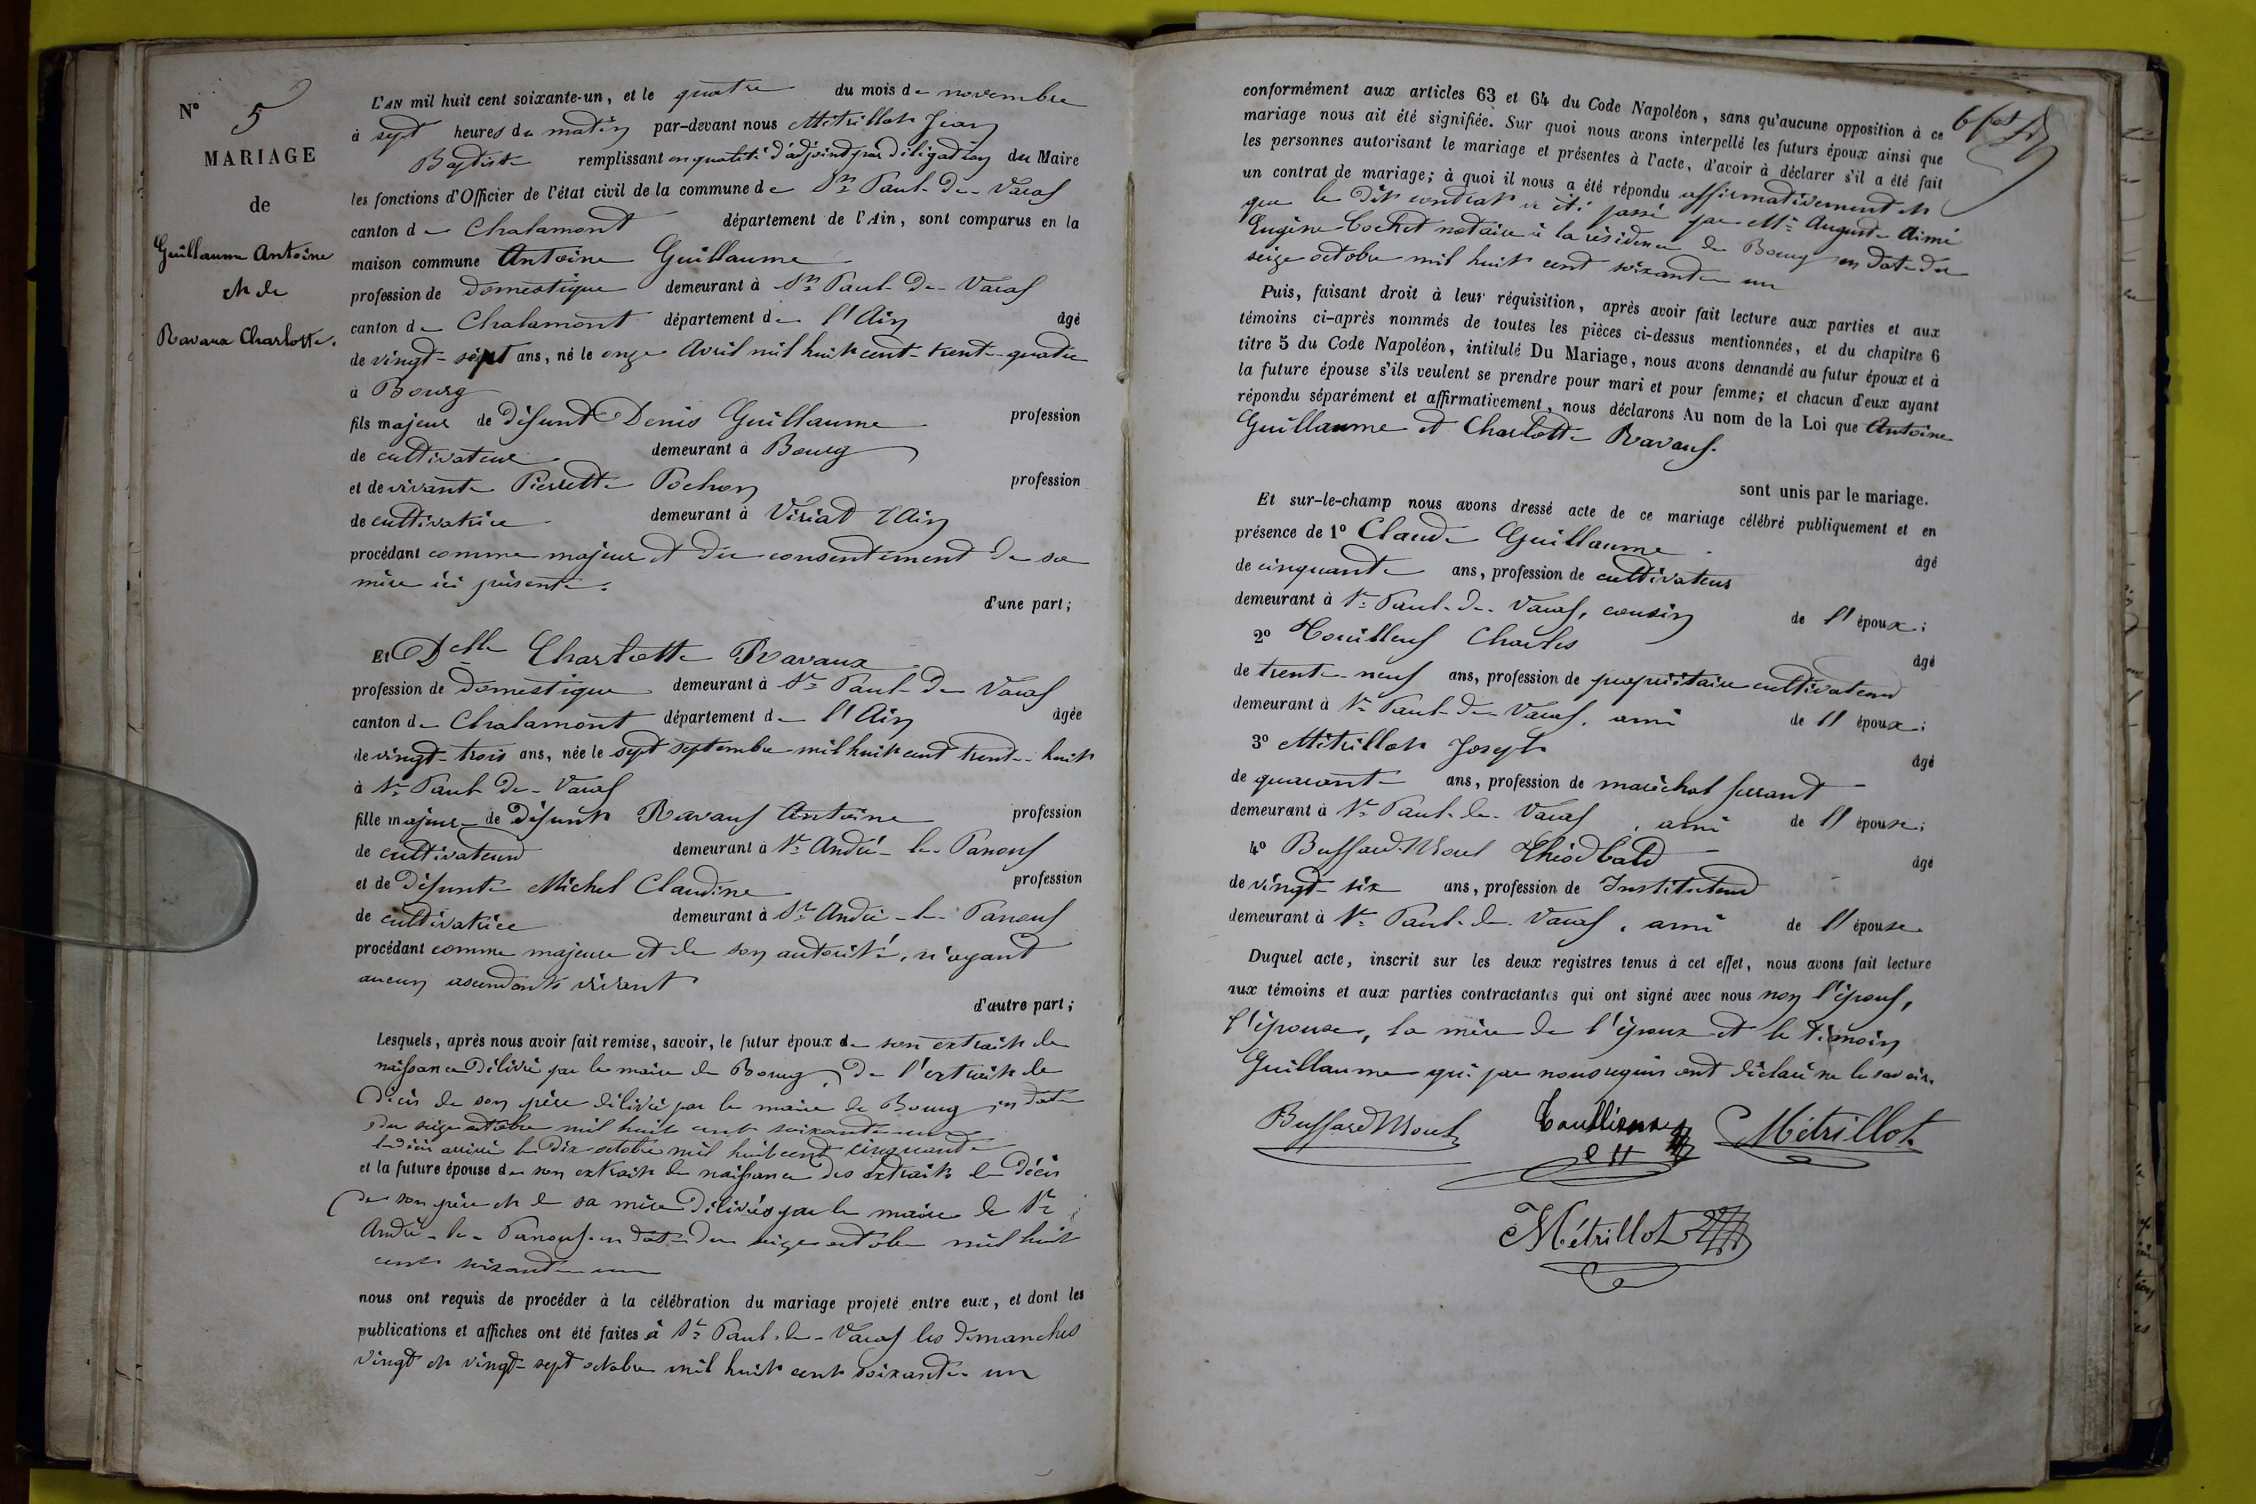 N° 5
MARIAGE
de
Guillaume Antoine
et de
Ravaux Charlotte.
L'AN mil huit cent soixante-un, et le quatre du mois de novembre
à sept heures du matin par-devant nous Métrillot Jean
Baptiste remplissant en qualité d'adjoint par délégation du Maire
les fonctions d'Officier de l'état civil de la commune de St Paul-de-Varax
canton de Chalamont département de l'Ain, sont comparus en la
maison commune Antoine Guillaume
profession de domestique demeurant à St Paul-de-Varax
canton de Chalamont département de l'Ain âgé
de vingt-sept ans, né le onze Avril mil huit cent-trente-quatre
à Bourg
fils majeur de défunt Denis Guillaume profession
de cultivateur demeurant à Bourg
et de vivante Pierrette Pochon profession
de cultivatrice demeurant à Viriat l'Ain
procédant comme majeur et du consentement de sa
mère ici présente.
d'une part;
Et Delle Charlotte Ravaux
profession de domestique demeurant à St Paul-de-Varax
canton de Chalamont département de l'Ain âgée
de vingt-trois ans, née le sept septembre mil huit cent trente-huit
à St Paul-de-Varax
fille majeure de défunt Ravaux Antoine profession
de cultivateur demeurant à St André-le-Panoux
et de défunte Michel Claudine profession
de cultivatrice demeurant à St André-le-Panoux
procédant comme majeure et de son autorité, n'ayant
aucun ascendants vivant
d'autre part;
Lesquels, après nous avoir fait remise, savoir, le futur époux de son extrait de
naissance délivré par le maire de Bourg, de l'extrait de
décès de son père délivré par le maire de Bourg en date
du seize octobre mil huit cent soixante-un
le dix octobre mil huit cent cinquante
et la future épouse de son extrait de naissance des extraits de décès
de son père et de sa mère délivrés par le maire de St
André-le-Panoux en date du seize octobre mil huit
cent soixante-un
nous ont requis de procéder à la célébration du mariage projeté entre eux, et dont les
publications et affiches ont été faites à St Paul-de-Varax les dimanches
vingt et vingt-sept octobre mil huit cent soixante-un
conformément aux articles 63 et 64 du Code Napoléon, sans qu'aucune opposition à ce
mariage nous ait été signifiée. Sur quoi nous avons interpellé les futurs époux ainsi que
les personnes autorisant le mariage et présentes à l'acte, d'avoir à déclarer s'il a été fait
un contrat de mariage; à quoi il nous a été répondu affirmativement et
que le dit contrat a été passé par Me Auguste Aimé
Eugène Cochet notaire à la résidence de Bourg en date du
seize octobre mil huit cent soixante un
Puis, faisant droit à leur réquisition, après avoir fait lecture aux parties et aux
témoins ci-après nommés de toutes les pièces ci-dessus mentionnées, et du chapitre 6
titre 5 du Code Napoléon, intitulé Du Mariage, nous avons demandé au futur époux et à
la future épouse s'ils veulent se prendre pour mari et pour femme; et chacun d'eux ayant
répondu séparément et affirmativement, nous déclarons Au nom de la Loi que Antoine
Guillaume et Charlotte Ravaux.
sont unis par le mariage.
Et sur-le-champ nous avons dressé acte de ce mariage célébré publiquement et en
présence de 1° Claude Guillaume âgé
de cinquante ans, profession de cultivateur
demeurant à St Paul-de-Varax, cousin de l'époux;
2° Touilleux Charles âgé
de trente-neuf ans, profession de propriétaire cultivateur
demeurant à St Paul-de-Varax, ami de l'époux;
3° Métrillot Joseph âgé
de quarante ans, profession de maréchal ferrant
demeurant à St Paul-de-Varax, ami de l'épouse;
4° Buffard Théodbald âgé
de vingt-six ans, profession de Instituteur
demeurant à St Paul-de-Varax, ami de l'épouse
Duquel acte, inscrit sur les deux registres tenus à cet effet, nous avons fait lecture
aux témoins et aux parties contractantes qui ont signé avec nous non l'époux,
l'épouse, la mère de l'époux et le témoin
Guillaume qui par nous requis ont déclaré ne le savoir.
Métrillot
Métrillot